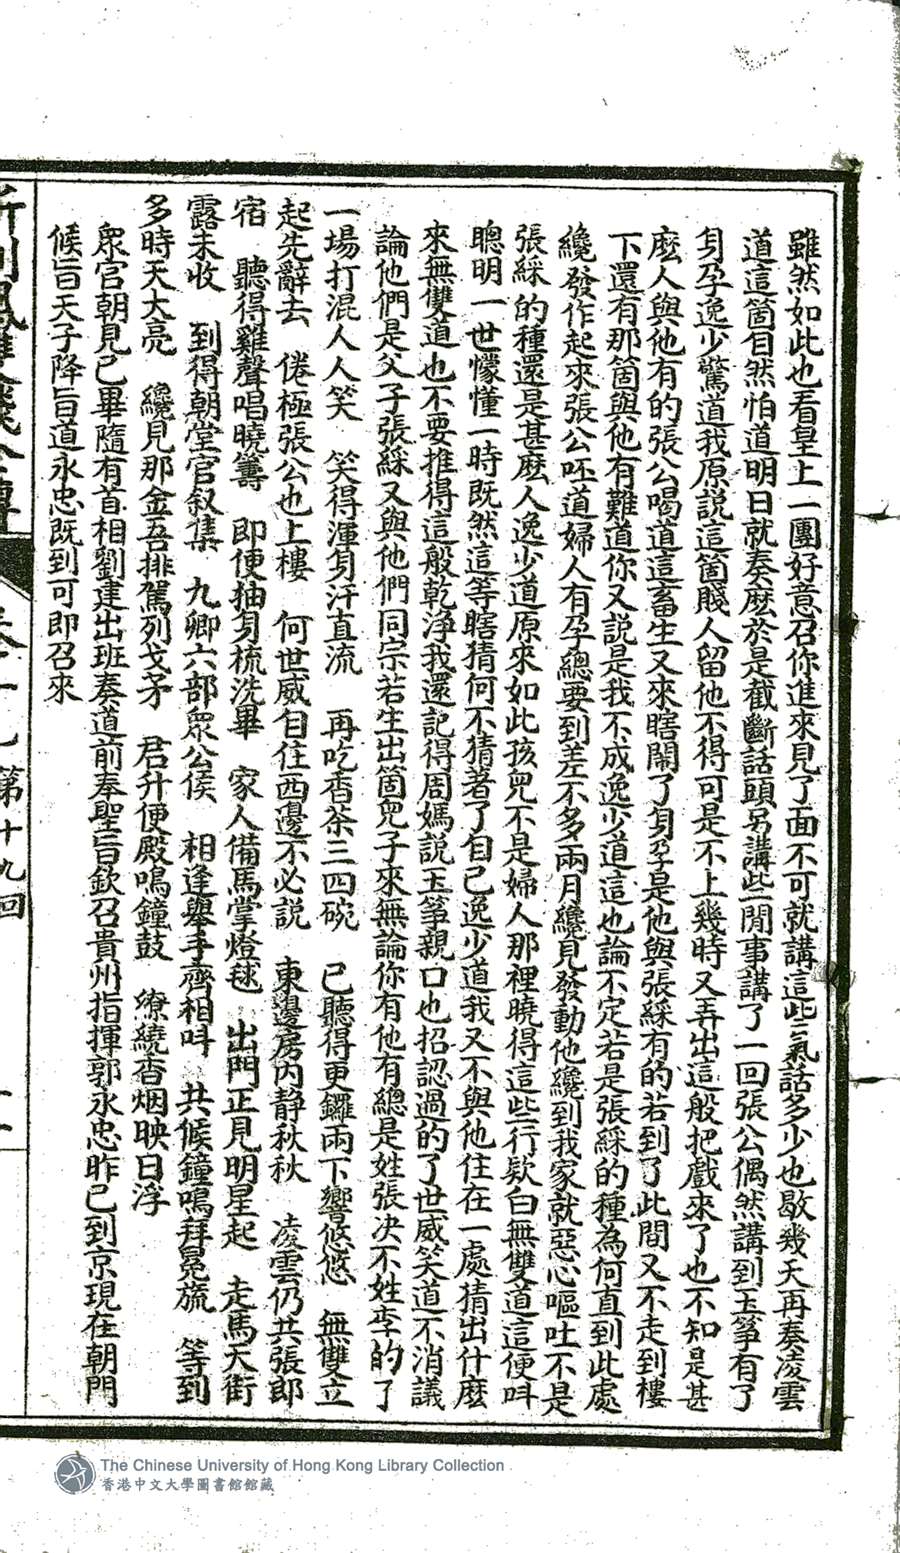 雖然如此也看皇上一團好意召你進來見了面不可就講這些氣話多少也歇幾天再奏凌雲
道這箇自然怕道明日就奏麽於是截斷話頭另講些閒事講了一回張公偶然講到玉筝有了
身孕逸少驚道我原說這箇賤人留他不得可是不上幾時又弄出這般把戲來了也不知是甚
麽人與他有的張公喝道這畜生又來瞎鬧了身孕是他與張綵有的若到了此間又不走到樓
下還有那箇與他有難道你又說是我不成逸少道這也論不定若是張綵的種為何直到此處
纔發作起來張公呸道婦人有孕總要到差不多兩月纔見發動他纔到我家就惡心嘔吐不是
張綵的種還是甚麽人逸少道原來如此孩兒不是婦人那裡曉得這些行欵白無雙道這便呌
聰明一世懞懂一時既然這等瞎猜何不猜著了自己逸少道我又不與他住在一處猜出什麽
來無雙道也不要推得這般乾淨我還記得周媽説玉筝親口也招認過的了世威笑道不消議
論他們是父子張綵又與他們同宗若生出箇兒子來無論你有他有總是姓張决不姓李的了
一場打混人人笑　笑得渾身汗直流　再吃香茶三四碗　已聽得更鑼兩下響悠悠　無雙立
起先辭去　倦極張公也上樓　何世威自住西邊不必説　東邊房内静秋秋　凌雲仍共張郎
宿　聽得雞聲唱曉籌　即便抽身梳洗畢　家人備馬掌燈毬　出門正見明星起　走馬天街
露未收　到得朝堂官叙集　九卿六部眾公侯　相逢舉手齊相呌　共候鐘鳴拜冕旒　等到
多時天大亮　纔見那金吾排駕列戈矛　君升便殿鳴鐘鼓　繚繞香烟映日浮
眾官朝見已畢隨有首相劉建出班奏道前奉聖旨欽召貴州指揮郭永忠昨已到京現在朝門
候旨天子降旨道永忠既到可即召來
第十九回
The Chinese University of Hong Kong Library Collection
香港中文大學圖書館館藏